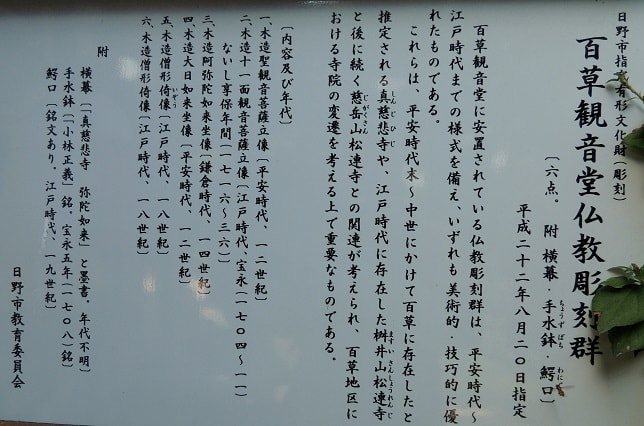 日野市指定有形文化財(彫刻)
百草観音堂仏教彫刻群
〔六点。附 横幕・手水鉢・鰐口〕
平成二十二年八月二〇日指定
百草観音堂に安置されている仏教彫刻群は、平安時代～
江戸時代までの様式を備え、いずれも美術的・技巧的に優
れたものである。
これらは、平安時代末～中世にかけて百草に存在したと
推定される真慈悲寺や、江戸時代に存在した桝井山松連寺
と後に続く慈岳山松連寺との関連が考えられ、百草地区に
おける寺院の変遷を考える上で重要なものである。
〔内容及び年代〕
一、木造聖観音菩薩立像〔平安時代、一二世紀〕
二、木造十一面観音菩薩立像〔江戸時代、宝永(一七〇四～一一)
ないし享保年間(一七一六～三六)〕
三、木造阿弥陀如来坐像〔鎌倉時代、一四世紀〕
四、木造大日如来坐像〔平安時代、一二世紀〕
五、木造僧形倚像〔江戸時代、一八世紀〕
六、木造僧形倚像〔江戸時代、一八世紀〕
附
横幕〔「真慈悲寺 弥陀如来」と墨書。年代不明〕
手水鉢〔「小林正義」銘。宝永五年(一七〇八)銘〕
鰐口〔銘文あり。江戸時代、一九世紀〕
日野市教育委員会